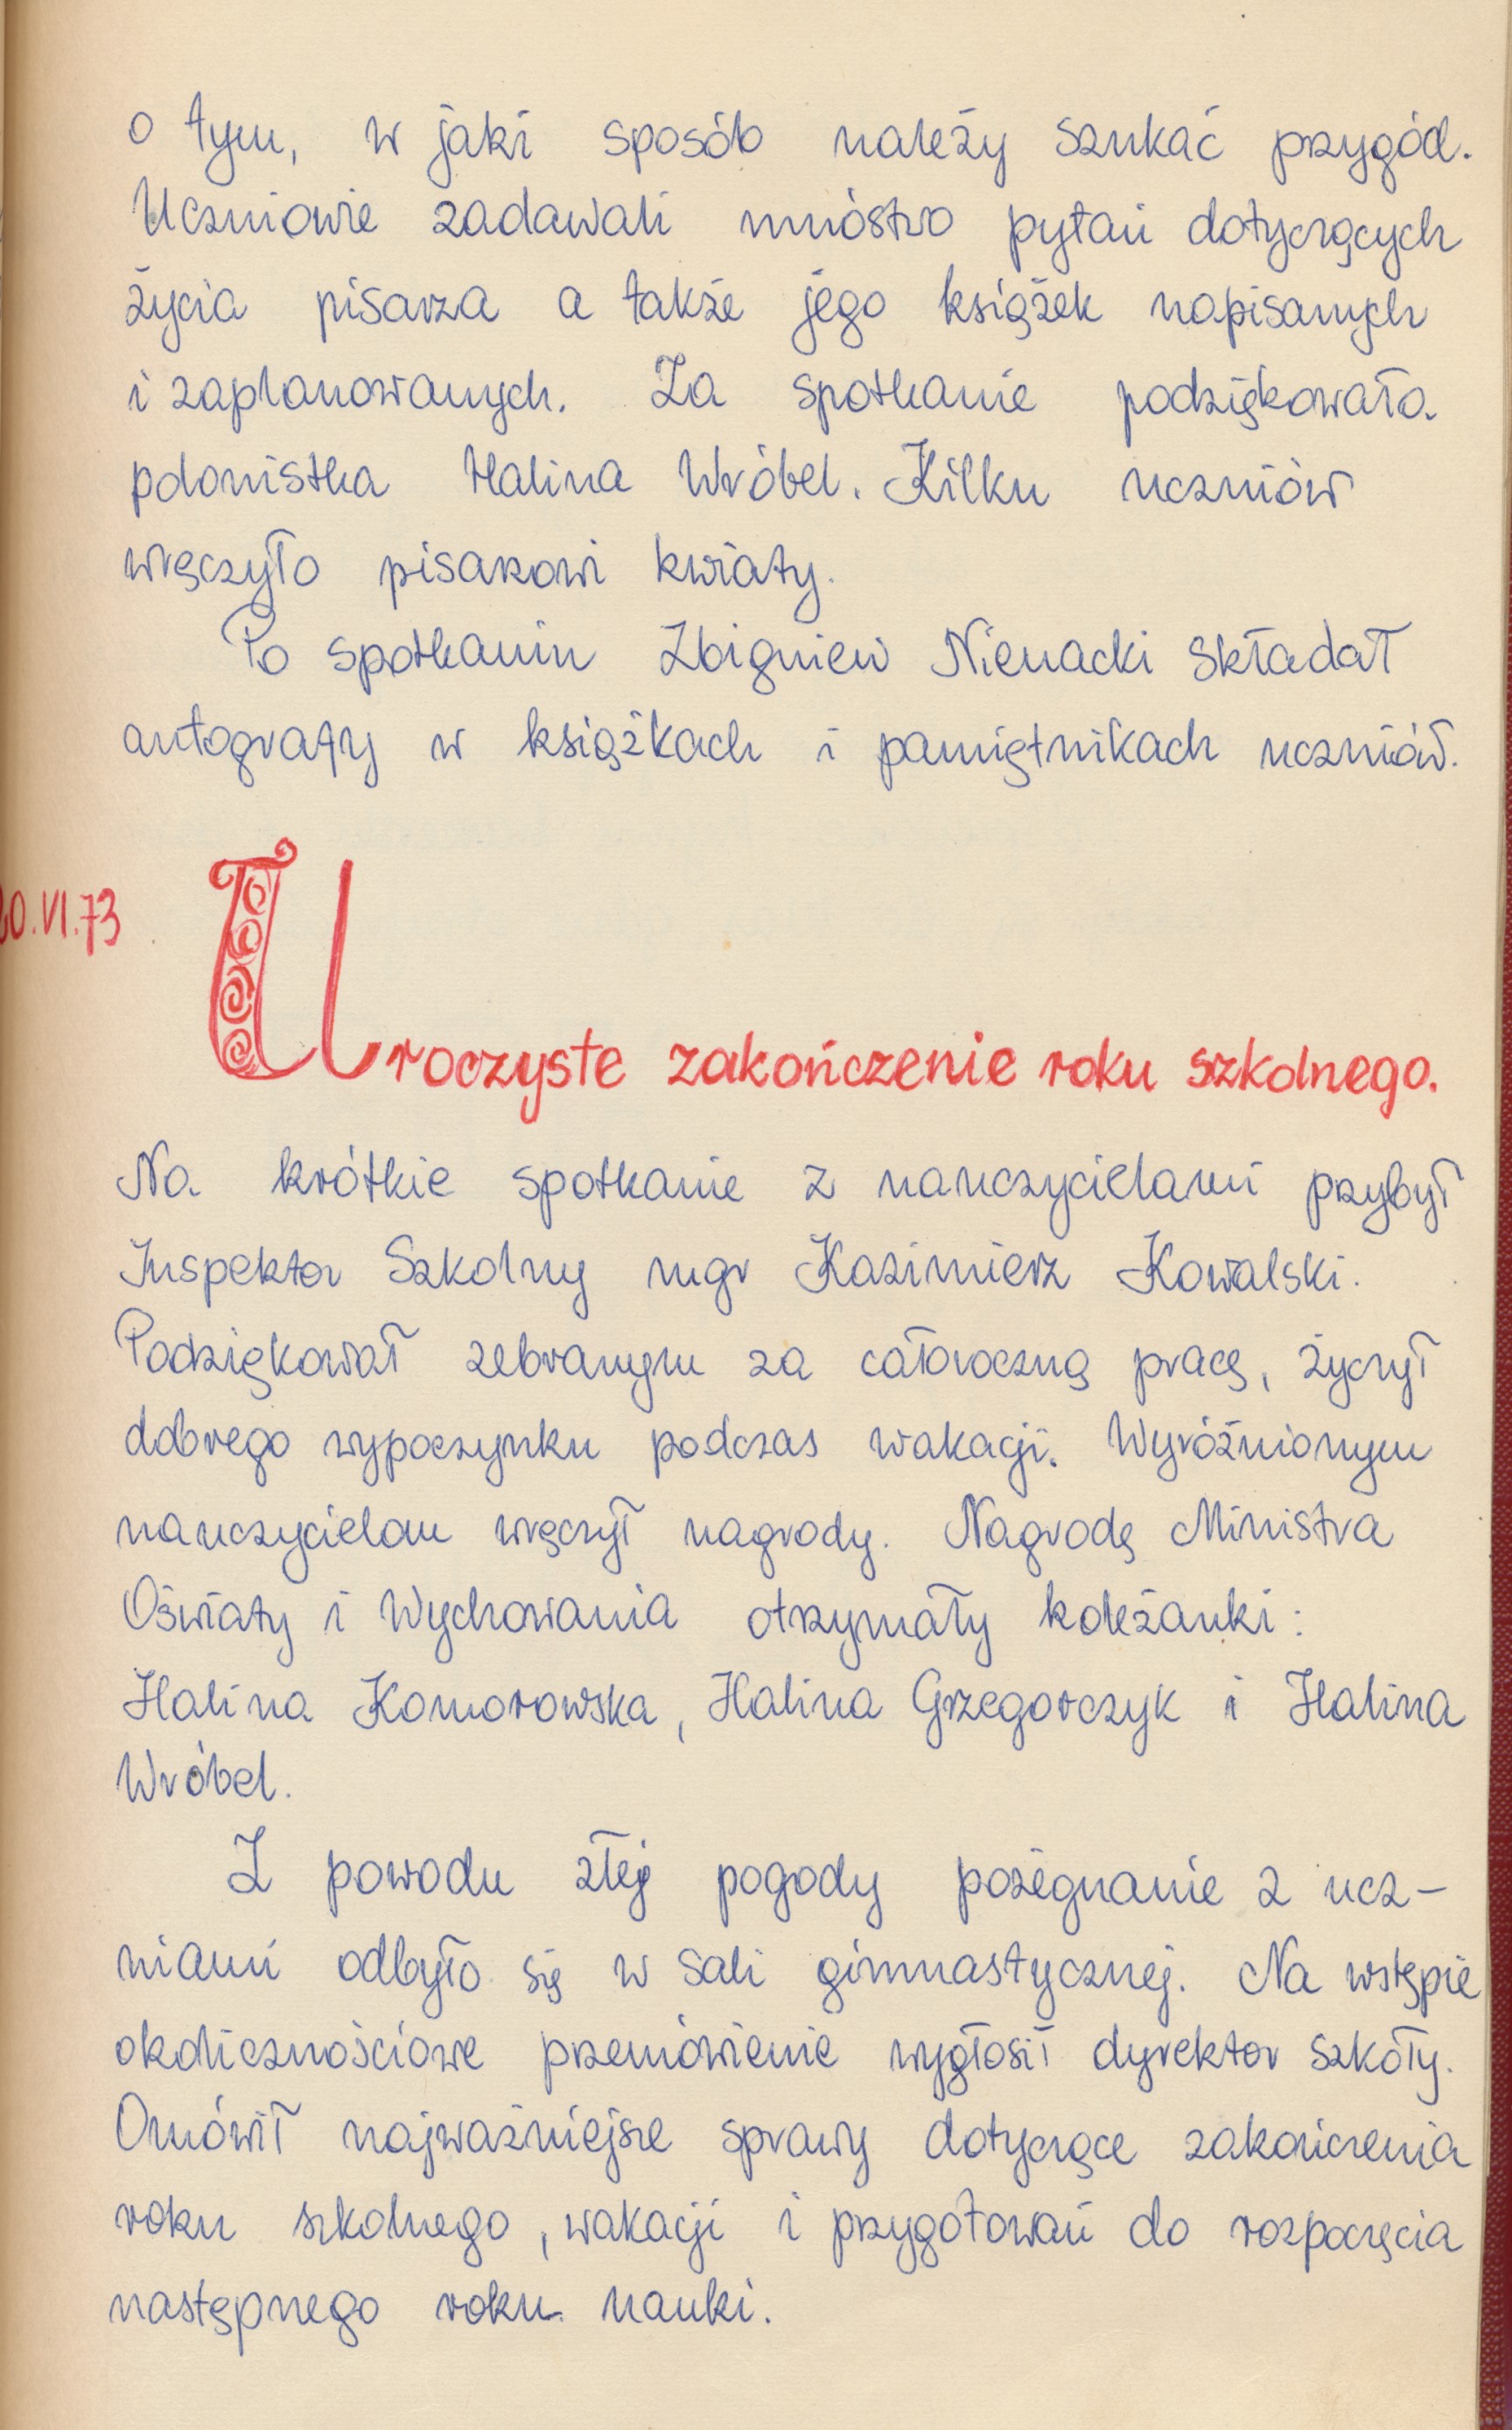 o tym, w jaki sposób należy szukać przygód.
Uczniowie zadawali mnóstwo pytań dotyczących
życia pisarza a także jego książek napisanych
i zaplanowanych. Za spotkanie podziękowała
polonistka Halina Wróbel. Kilku uczniów
wręczyło pisarzowi kwiaty.
Po spotkaniu Zbigniew Nienacki składał
autografy w książkach i pamiętnikach uczniów.
20.VI.73
Uroczyste zakończenie roku szkolnego.
Na krótkie spotkanie z nauczycielami przybył
Inspektor Szkolny mgr Kazimierz Kowalski.
Podziękował zebranym za całoroczną pracę, życzył
dobrego wypoczynku podczas wakacji. Wyróżnionym
nauczycielom wręczył nagrody. Nagrodę Ministra
Oświaty i Wychowania otrzymały koleżanki:
Halina Komorowska, Halina Grzegorczyk i Halina
Wróbel.
Z powodu złej pogody pożegnanie z ucz-
niami odbyło się w sali gimnastycznej. Na wstępie
okolicznościowe przemówienie wygłosił dyrektor szkoły.
Omówił najważniejsze sprawy dotyczące zakończenia
roku szkolnego, wakacji i przygotowań do rozpoczęcia
następnego roku nauki.